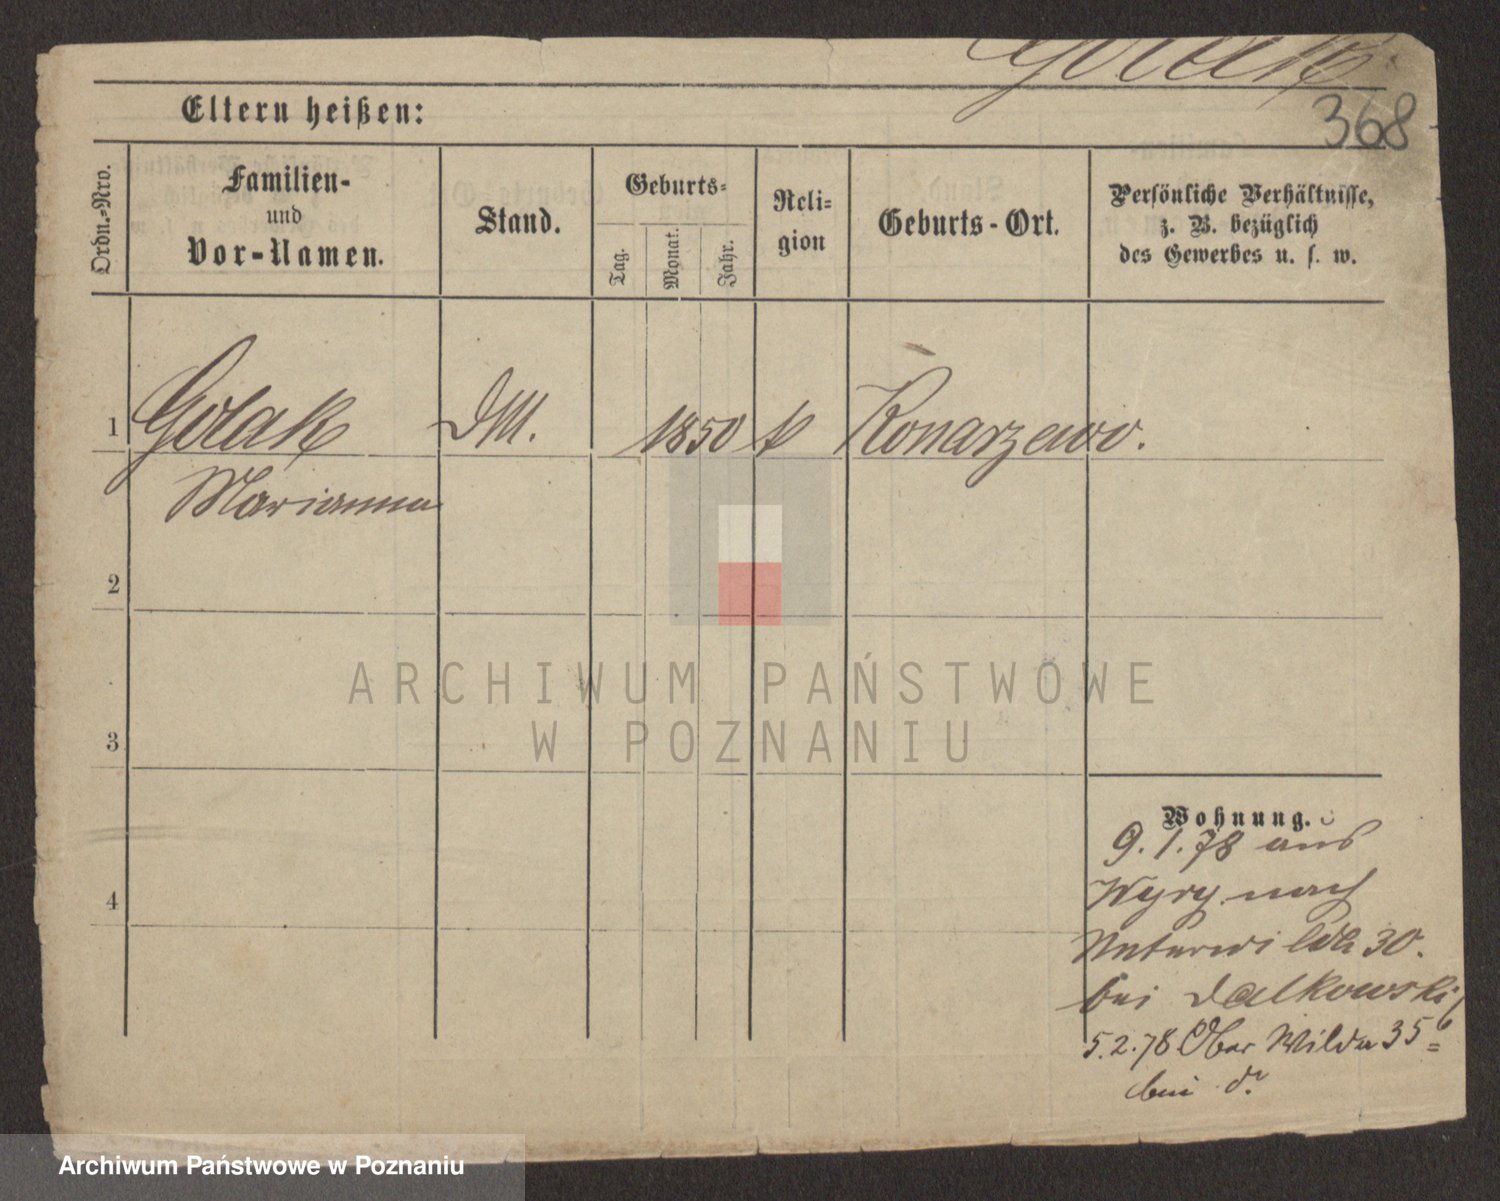 Golak
368
Eltern heißen:
Ordn.-Nro.
Familien-
und
Vor-Namen.
Stand.
Geburts-
Tag.
Monat.
Jahr.
Reli-
gion
Geburts-Ort.
Persönliche Verhältnisse,
z. B. bezüglich
des Gewerbes u. s. w.
1 Golak DM. 1850 k Konarzewo.
Marianna
2
3
4
Wohnung.
9.1.78 aus
Wyry nach
Unterwilda 30.
bei Dalkowski
5.2.78 Ober Wilda 35
bei d.
ARCHIWUM PAŃSTWOWE
W POZNANIU
Archiwum Państwowe w Poznaniu